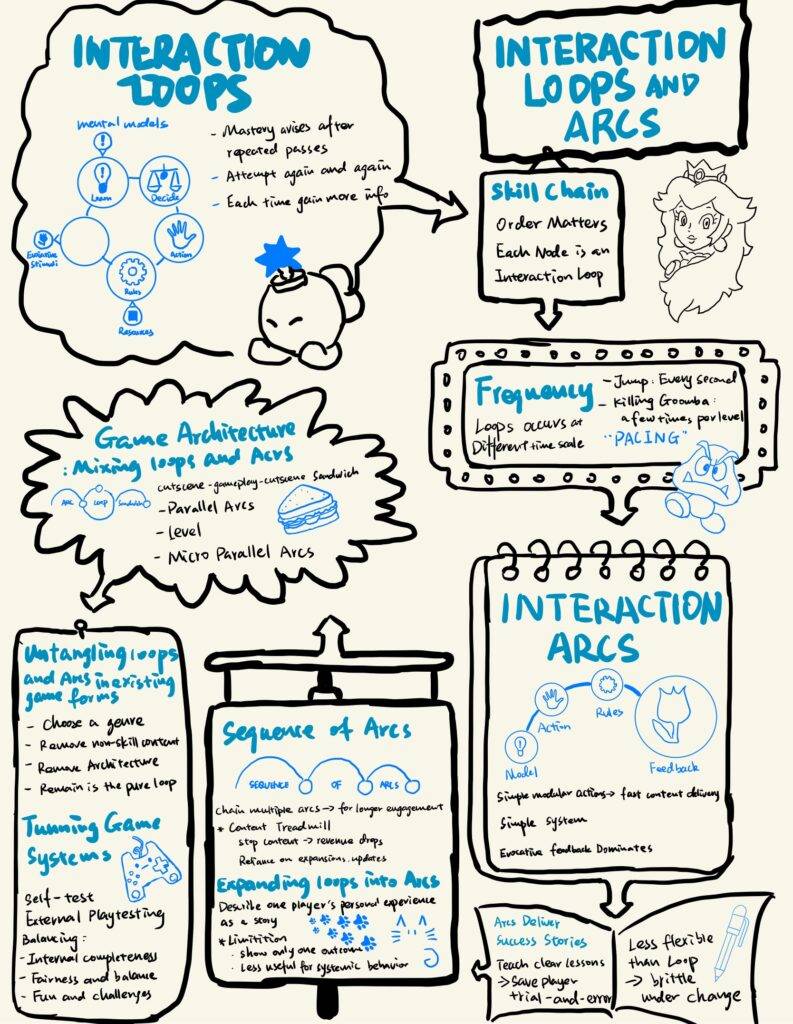 INTERACTION
LOOPS
mental models
Learn
Decide
Action
Rules
Resources
Evocative
Stimuli
- Mastery arises after
repeated passes
- Attempt again and again
- Each time gain more info
INTERACTION
LOOPS AND
ARCS
Skill Chain
Order Matters
Each Node is an
Interaction Loop
Frequency
Loops occurs at
Different time scale
- Jump: Every second
- Killing Goomba:
a few times per level
"PACING"
INTERACTION
ARCS
Model
Action
Rules
Feedback
Simple modular actions→ fast content delivery
Simple system
Evocative feedback Dominates
Arcs Deliver
Success Stories
Teach clear lessons
→ Save player
trial-and-error
Less flexible
than Loop
→ brittle
under change
Sequence of Arcs
SEQUENCE OF ARCS
Chain multiple arcs → for longer engagement
* Content Treadmill
stop content → revenue drops
Reliance on expansions, updates
Expanding loops into Arcs
Describe one player's personal experience
as a story
* Limitition
· show only one outcome
· Less useful for systemic behavior
Game Architecture
: Mixing loops and Acrs
ARC Loop Sandwich
cutscene-gameplay-cutscene sandwich
- Parallel Arcs
- Level
- Micro Parallel Arcs
Untangling loops
and Arcs in existing
game forms
- Choose a genre
- Remove non-skill content
- Remove Architecture
- Remain is the pure loop
Tunning Game
Systems
Self-test
External Playtesting
Balancing:
- Internal completeness
- Fairness and balance
- Fun and challenges